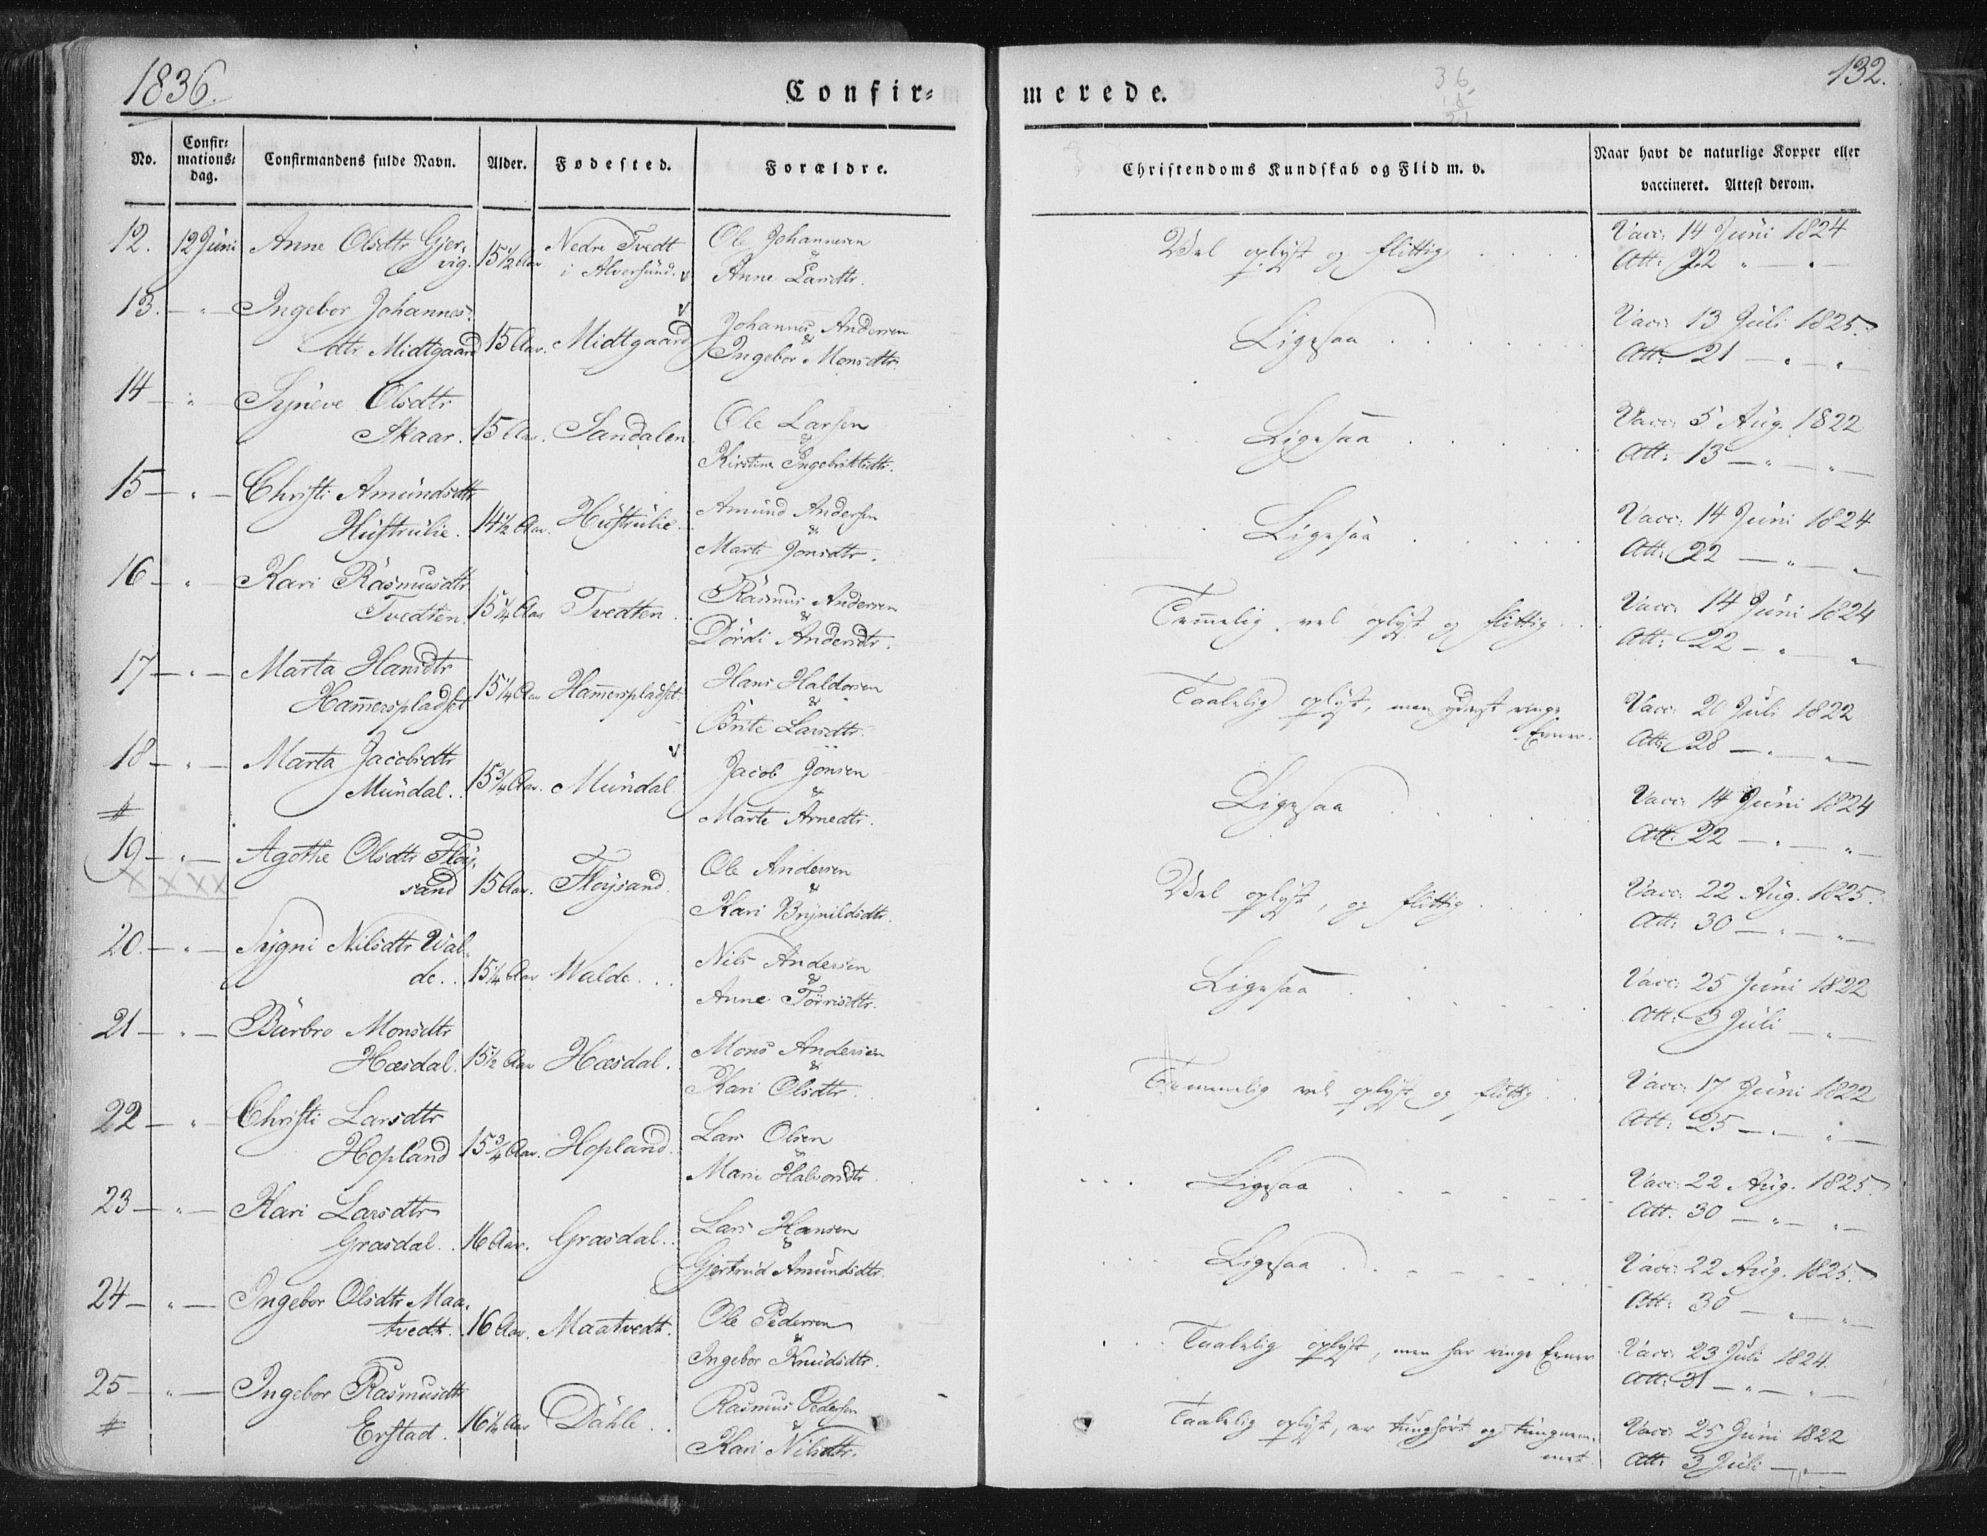 1836.
Confir-
merede.
132.
No.
Confir-
mations-
dag.
Confirmandens fulde Navn.
Alder.
Fødested.
Forældre.
Christendoms Kundskab og Flid m. v.
Naar havt de naturlige Kopper eller
vaccineret. Attest derom.
12. 12 Juni Anne Olsdtr Gjer-
vig. 15 1/2 Aar Nedre Tvedt
i Alversund. Ole Johannesen
&
Anne Larsdtr.
Vel oplyst og flittig
Vacc: 14 Juni 1824
Att: 22 " — " —
13. — " — Ingebor Johannes-
dtr Midtgaard 15 Aar. Midtgaard Johannes Andersen
&
Ingebor Monsdtr.
Ligesaa
Vacc: 13 Juli 1825.
Att: 21 — " — " —
14 — " — Syneve Olsdtr
Skaar. 15 Aar. Sandalen Ole Larsen
&
Kirstine Ingebrigtsdtr.
Ligesaa
Vacc: 5 Aug. 1822
Att: 13 — " — " —
15 — " — Christi Amundsdtr
Hustrulie. 14 1/2 Aar. Hustrulie Amund Andersen
&
Marte Jonsdtr.
Ligesaa
Vacc: 14 Juni 1824
Att: 22 — " — " —
16 — " — Kari Rasmusdtr
Tvedten. 15 1/4 Aar Tvedten Rasmus Andersen
&
Dordi Andersdtr.
Temelig vel oplyst og flittig
Vacc: 14 Juni 1824
Att: 22 — " — " —
17 — " — Marta Hansdtr
Hamerspladset 15 1/4 Aar Hamerspladset Hans Haldorsen
&
Brite Larsdtr.
Taalelig oplyst, men yderst ringe
Evner.
Vacc: 20 Juli 1822
Att: 28 — " — " —
18 — " — Marta Jacobsdtr
Mundal. 15 3/4 Aar. Mundal Jacob Jonsen
&
Marte Arnedtr.
#
Ligesaa
Vacc: 14 Juni 1824
Att: 22 — " — " —
19 — " — Agothe Olsdtr Floy-
sand 15 Aar. Floysand Ole Andersen
&
Kari Brynildsdtr.
x x x x
Vel oplyst, og flittig
Vacc: 22 Aug. 1825.
Att: 30 — " — " —
20. — " — Sygni Nilsdtr Wal-
de. 15 1/4 Aar Walde Nils Andersen
&
Anne Torrisdtr.
Ligesaa
Vacc: 25 Juni 1822
Att: 3 Juli — " —
21 — " — Barbro Monsdtr
Hæsdal. 15 1/2 Aar Hæsdal. Mons Andersen
&
Kari Olsdtr.
Temmelig vel oplyst og flittig
Vacc: 17 Juni 1822
Att: 25 — " — " —
22 — " — Christi Larsdtr
Hopland 15 3/4 Aar. Hopland Lars Olsen
&
Mari Halvorsdtr.
Ligesaa
Vacc: 22 Aug. 1825.
Att: 30 — " — " —
23 — " — Kari Larsdtr
Græsdal. 16 Aar. Græsdal. Lars Hansen
&
Gjertrud Amundsdtr.
Ligesaa
Vacc: 22 Aug. 1825.
Att: 30 — " — " —
24 — " — Ingebor Olsdtr Maa-
tvedt. 16 Aar. Maatvedt. Ole Pedersen
&
Ingebor Knudsdtr.
Taalelig oplyst, men har ringe Evner
Vacc: 23 Juli 1824.
Att: 31 — " — " —
25 — " — Ingebor Rasmusdtr
Erstad. 16 1/4 Aar Dahle Rasmus Pedersen
&
Kari Nilsdtr.
#
Taalelig oplyst, er tunghørt og tungnem-
met.
Vacc: 25 Juni 1822
Att: 3 Juli — " —